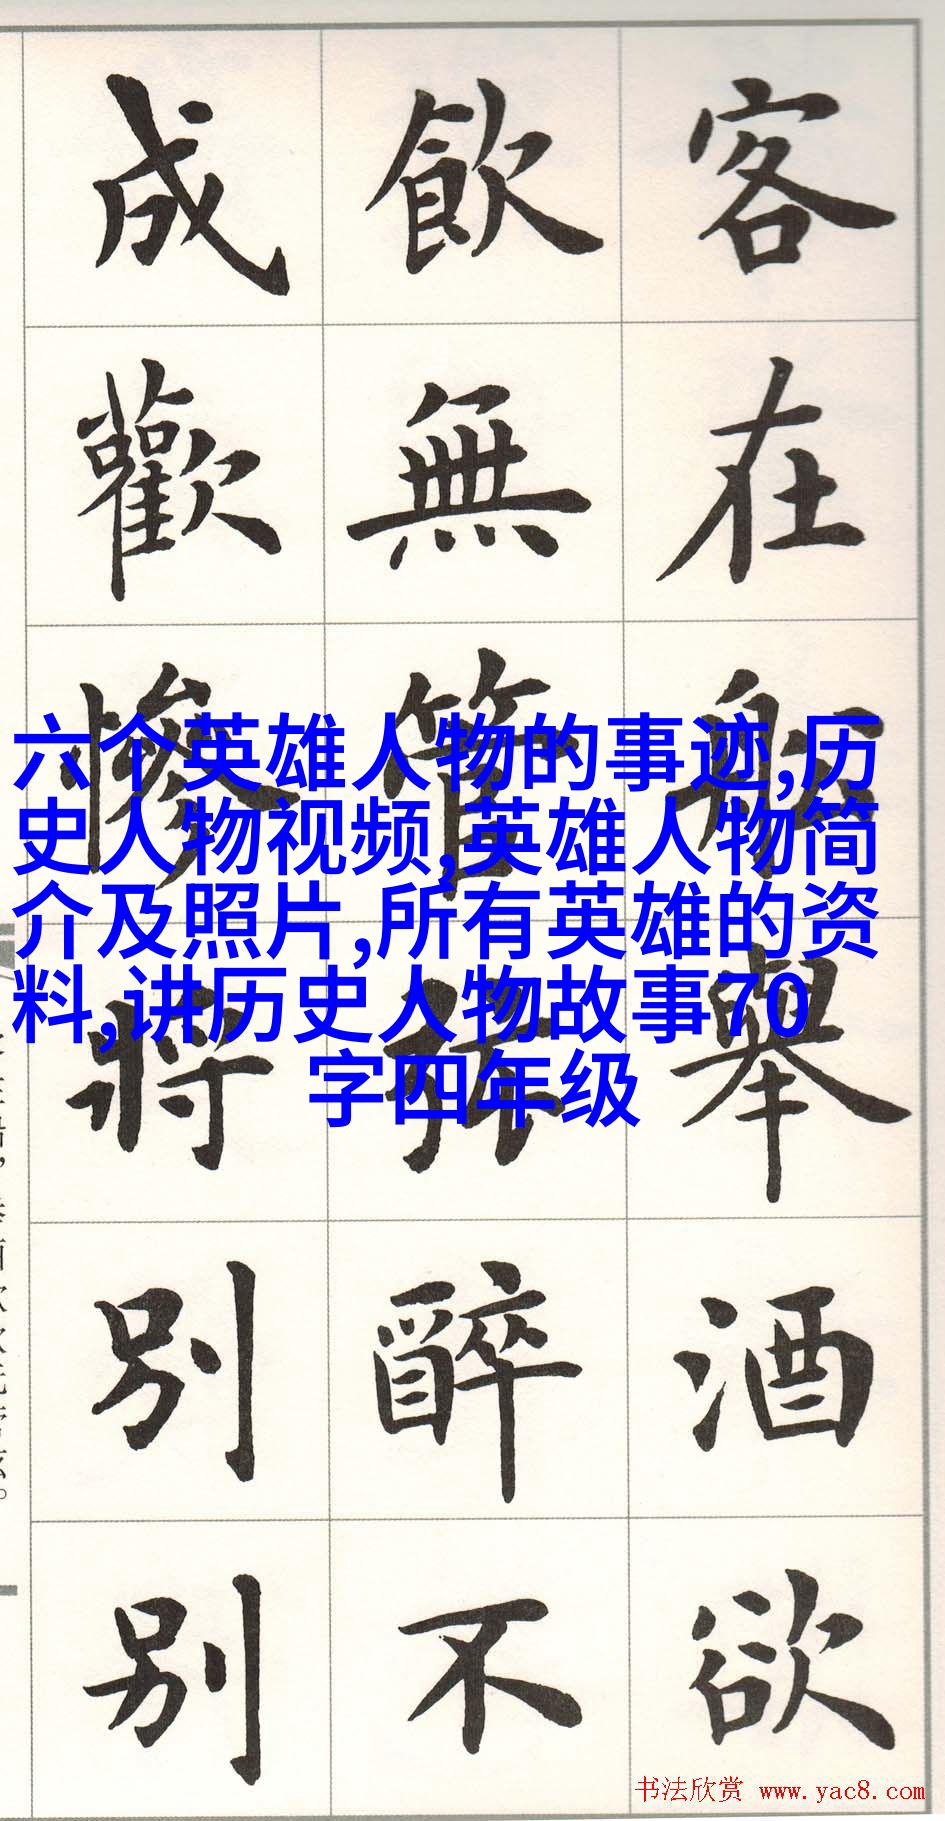 客在船舉酒欲
飲無管醉不
成歡慘將別別
六个英雄人物的事迹,历
史人物视频,英雄人物简
介及照片,所有英雄的资
料,讲历史人物故事70
字四年级
书法欣赏 www.yac8.com